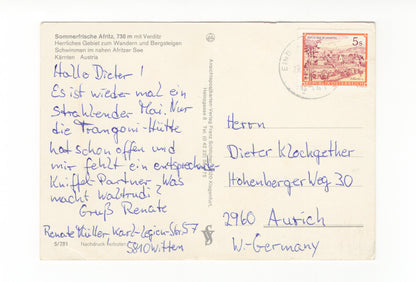 Sommerfrische Afritz, 736 m mit Verditz
Herrliches Gebiet zum Wandern und Bergsteigen
Schwimmen im nahen Afritzer See
Kärnten Austria
Hallo Dieter!
Es ist wieder mal ein
strahlender Mai. Nur
die Trangoni-Hütte
hat schon offen und
mir fehlt ein entsprechender
Kniffel-Partner. Was
macht Waltrudi?
Gruß Renate
Renate Müller, Karl-Legien-Str. 57
5810 Witten
5/781 Nachdruck verboten
5 S
REPUBLIK ÖSTERREICH
Herrn
Dieter Klochgether
Hohenberger Weg 30
2960 Aurich
W.-Germany